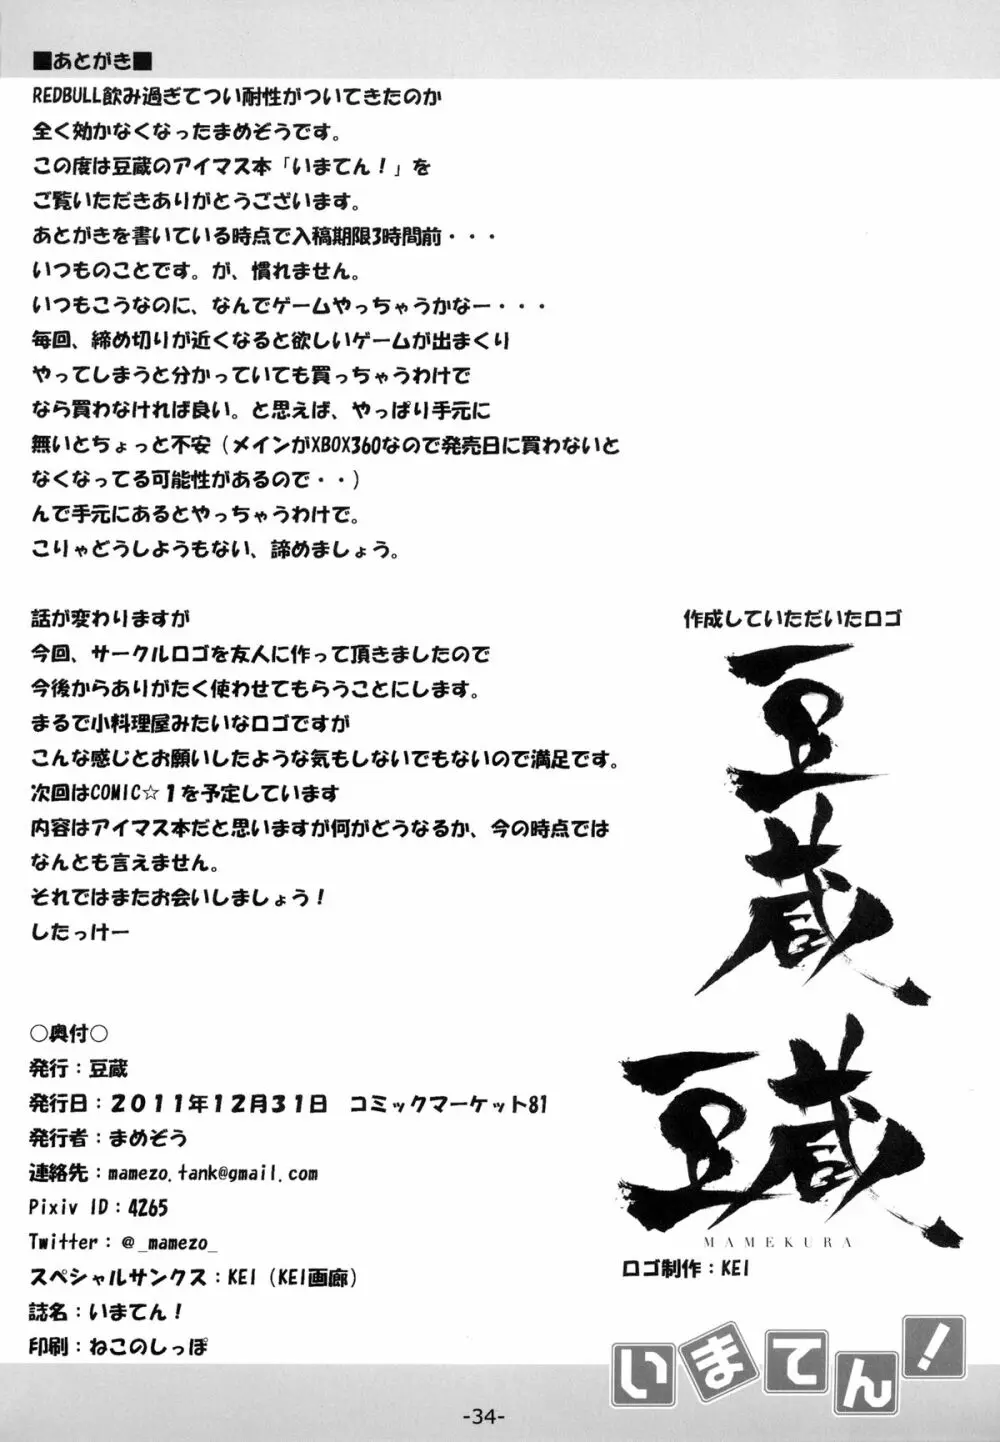 ■あとがき■
REDBULL飲み過ぎてつい耐性がついてきたのか
全く効かなくなったまめぞうです。
この度は豆蔵のアイマス本「いまてん！」を
ご覧いただきありがとうございます。
あとがきを書いている時点で入稿期限3時間前・・・
いつものことです。が、慣れません。
いつもこうなのに、なんでゲームやっちゃうかなー・・・
毎回、締め切りが近くなると欲しいゲームが出まくり
やってしまうと分かっていても買っちゃうわけで
なら買わなければ良い。と思えば、やっぱり手元に
無いとちょっと不安（メインがXBOX360なので発売日に買わないと
なくなってる可能性があるので・・）
んで手元にあるとやっちゃうわけで。
こりゃどうしようもない、諦めましょう。
話が変わりますが
今回、サークルロゴを友人に作って頂きましたので
今後からありがたく使わせてもらうことにします。
まるで小料理屋みたいなロゴですが
こんな感じとお願いしたような気もしないでもないので満足です。
次回はCOMIC☆1を予定しています
内容はアイマス本だと思いますが何がどうなるか、今の時点では
なんとも言えません。
それではまたお会いしましょう！
したっけー
作成していただいたロゴ
豆蔵
豆蔵
MAMEKURA
ロゴ制作：KEI
○奥付○
発行：豆蔵
発行日：２０１１年１２月３１日　コミックマーケット81
発行者：まめぞう
連絡先：mamezo.tank@gmail.com
Pixiv ID：4265
Twitter：@_mamezo_
スペシャルサンクス：KEI（KEI画廊）
誌名：いまてん！
印刷：ねこのしっぽ
いまてん！
-34-